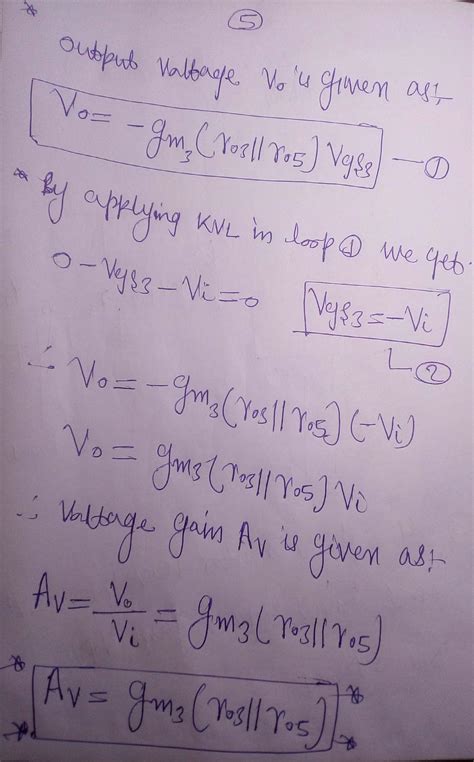 * ⑤
output Voltage Vo is given as:-
Vo = -gm3 (ro3 || ro5) Vgs3 — ①
* By applying KVL in loop ① we get.
0 - Vgs3 - Vi = 0 Vgs3 = -Vi
②
∴ Vo = -gm3 (ro3 || ro5) (-Vi)
Vo = gm3 (ro3 || ro5) Vi
∴ Voltage gain Av is given as:-
Av = Vo/Vi = gm3 (ro3 || ro5)
* Av = gm3 (ro3 || ro5) *
* *